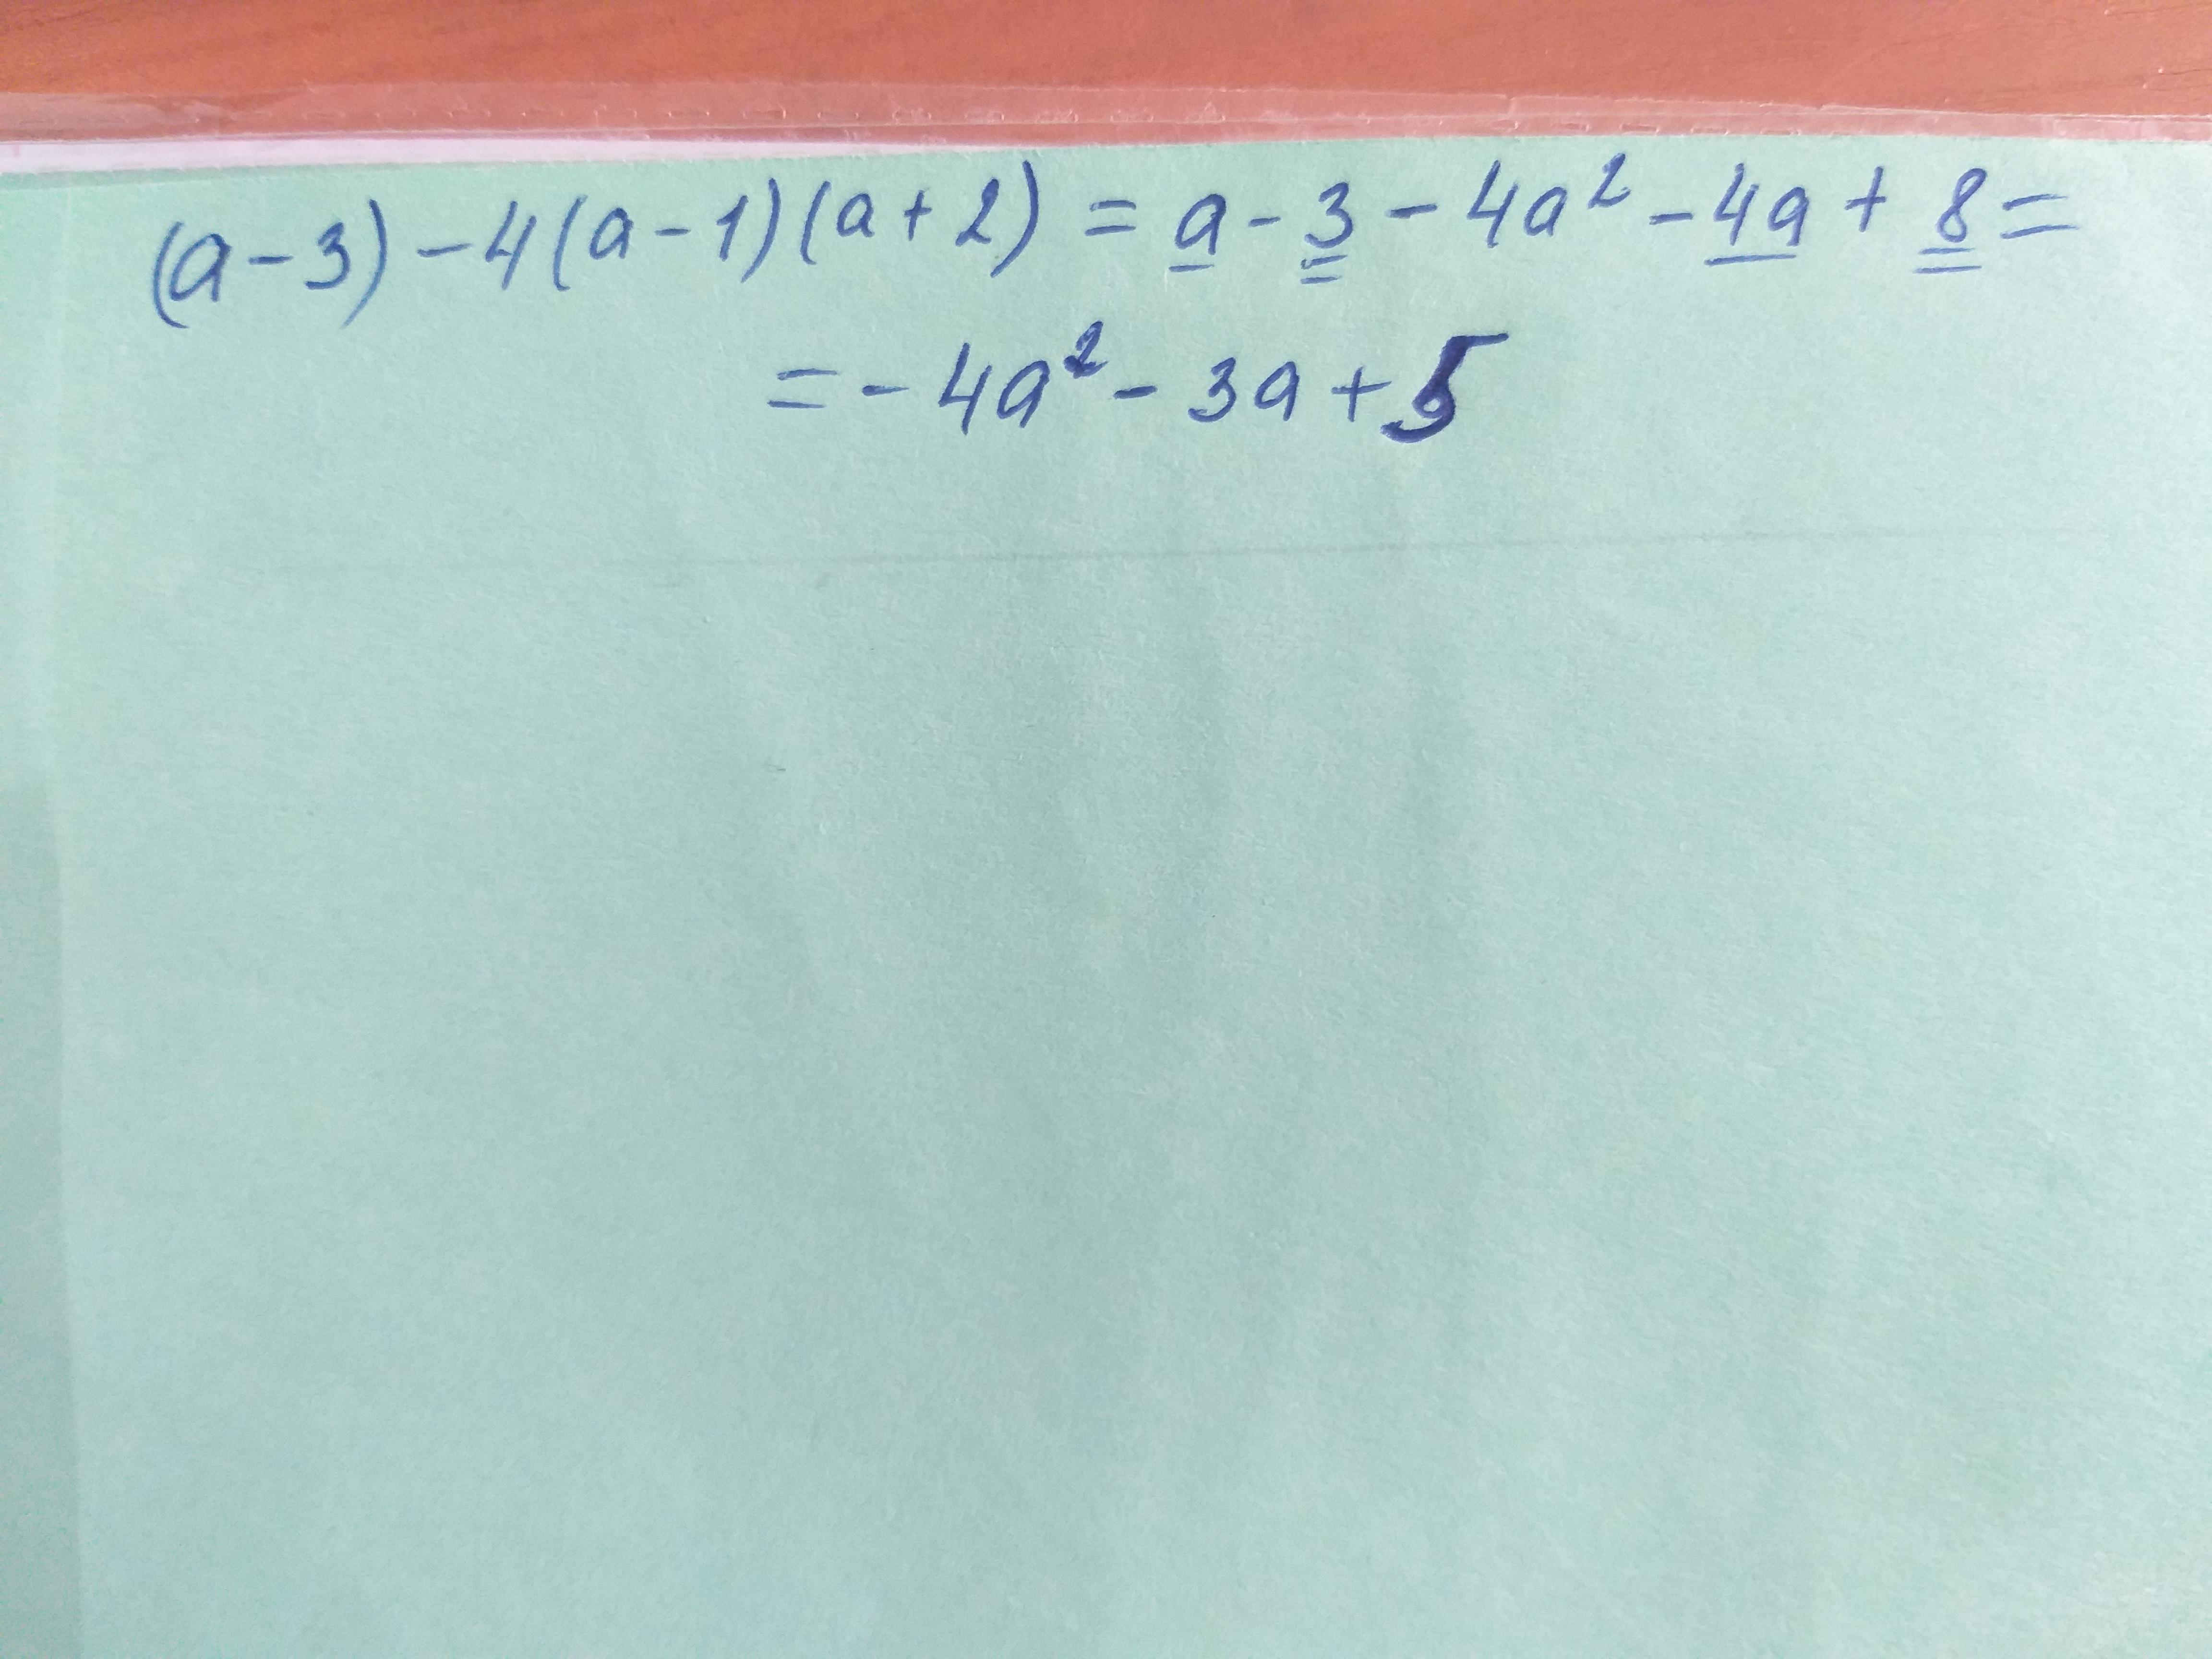 (a-3)-4(a-1)(a+2) = a-3-4a²-4a+8=
=-4a²-3a+5